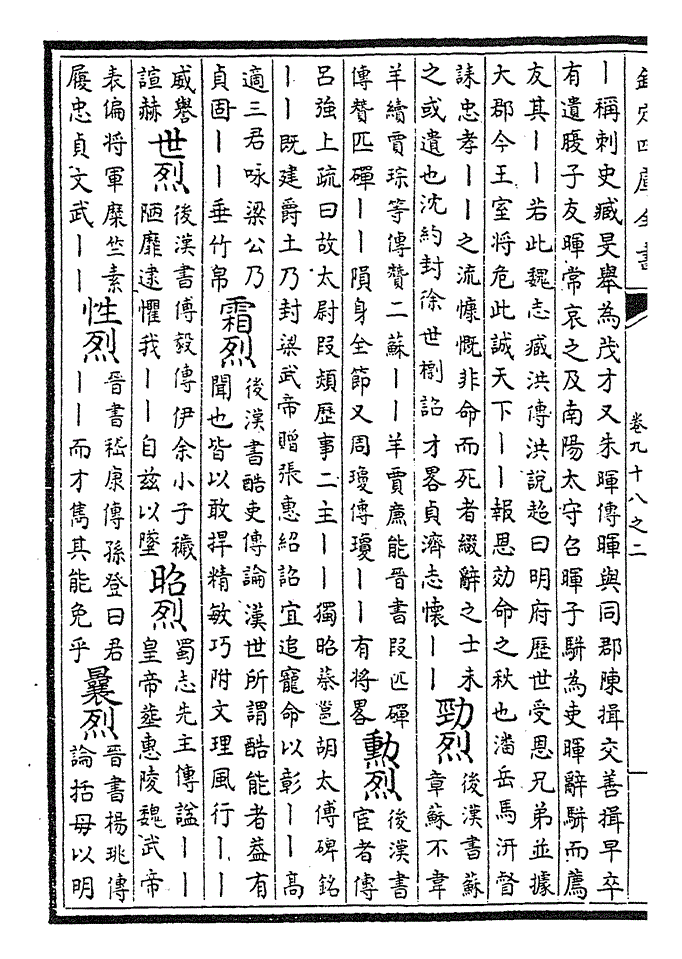 欽定四庫全書
卷九十八之二
｜稱刺史臧旻舉為茂才又朱暉傳暉與同郡陳揖交善揖早卒
有遺腹子友暉常哀之及南陽太守召暉子駢為吏暉辭駢而薦
友其｜｜若此魏志臧洪傳洪說超曰明府歴世受恩兄弟並據
大郡今王室將危此誠天下｜｜報恩効命之秋也潘岳馬汧督
誄忠孝｜｜之流慷慨非命而死者綴辭之士未
之或遺也沈約封徐世摽詔才畧貞濟志懷｜｜
勁烈
後漢書蘇
章蘇不韋
羊續賈琮等傳賛二蘇｜｜羊賈廉能晉書段匹磾
傳賛匹磾｜｜隕身全節又周瓊傳瓊｜｜有將畧
勲烈
後漢書
宦者傳
吕強上疏曰故太尉段熲歴事二主｜｜獨昭蔡邕胡太傅碑銘
｜｜既建爵土乃封梁武帝贈張惠紹詔宜追寵命以彰｜｜高
適三君咏梁公乃
貞固｜｜垂竹帛
霜烈
後漢書酷吏傳論漢世所謂酷能者葢有
聞也皆以敢捍精敏巧附文理風行｜｜
威譽
諠赫
世烈
後漢書傅毅傳伊余小子穢
陋靡逮懼我｜｜自兹以墜
昭烈
蜀志先主傳諡｜｜
皇帝葬惠陵魏武帝
表偏將軍麋竺素
履忠貞文武｜｜
性烈
晉書嵇康傳孫登曰君
｜｜而才雋其能免乎
曩烈
晉書楊珧傳
論括母以明